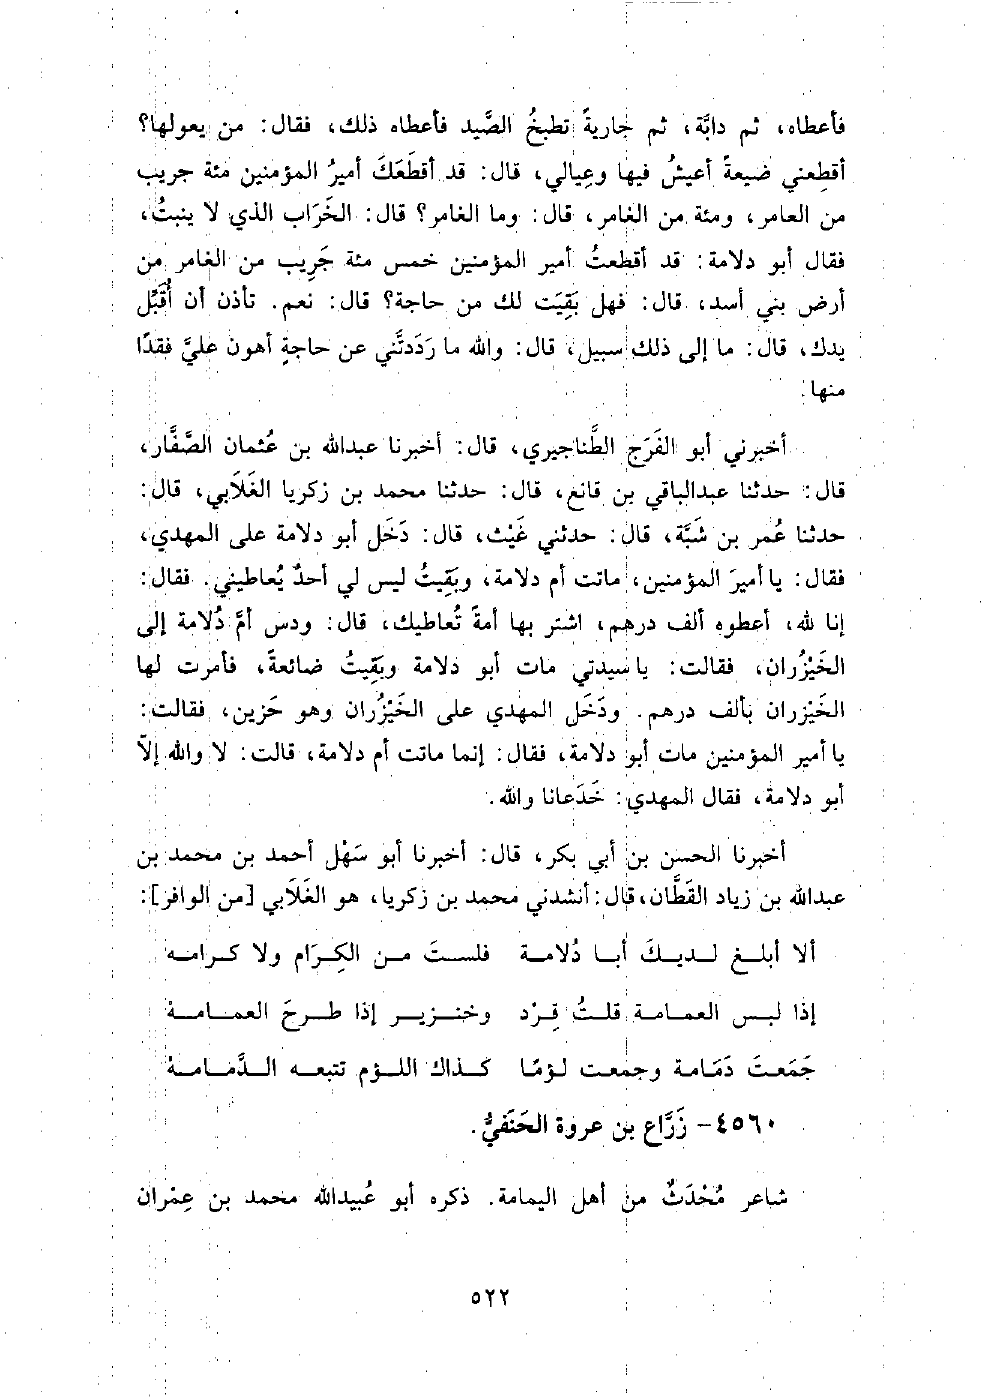 فأعطاه، ثم دابَّة، ثم جاريةً تطبخُ الصَّيد فأعطاه ذلك، فقال: من يعولها؟
أقطِعني ضيعةً أعيشُ فيها وعِيالي، قال: قد أقطَعَكَ أميرُ المؤمنين مئة جريب
من العامر، ومئة من الغامر، قال: وما الغامر؟ قال: الخَرَاب الذي لا ينبتُ،
فقال أبو دلامة: قد أقطعتُ أمير المؤمنين خمس مئة جَرِيب من الغامر من
أرض بني أسد، قال: فهل بَقِيَت لك من حاجة؟ قال: نعم. تأذن أن أُقَبِّل
يدك، قال: ما إلى ذلك سبيل، قال: والله ما رَدَدتَّني عن حاجةٍ أهون عليَّ فقدًا
منها.
أخبرني أبو الفَرَج الطَّناجيري، قال: أخبرنا عبدالله بن عُثمان الصَّفَّار،
قال: حدثنا عبدالباقي بن قانع، قال: حدثنا محمد بن زكريا الغَلَابي، قال:
حدثنا عُمر بن شَبَّة، قال: حدثني غَيْث، قال: دَخَل أبو دلامة على المهدي،
فقال: يا أميرَ المؤمنين، ماتت أم دلامة، وبَقِيتُ ليس لي أحدٌ يُعاطيني. فقال:
إنا لله، أعطوه ألف درهم، اشتر بها أمةً تُعاطيك، قال: ودس أمَّ دُلامة إلى
الخَيْزُران، فقالت: يا سيدتي مات أبو دلامة وبَقِيتُ ضائعةً، فأمرت لها
الخَيْزران بألف درهم. ودَخَل المهدي على الخَيْزُران وهو حَزين، فقالت:
يا أمير المؤمنين مات أبو دلامة، فقال: إنما ماتت أم دلامة، قالت: لا والله إلَّا
أبو دلامة، فقال المهدي: خَدَعانا والله.
أخبرنا الحسن بن أبي بكر، قال: أخبرنا أبو سَهْل أحمد بن محمد بن
عبدالله بن زياد القَطَّان، قال: أنشدني محمد بن زكريا، هو الغَلَابي [من الوافر]:
ألا أبلغ لديكَ أبا دُلامة فلستَ من الكِرَام ولا كرامه
إذا لبس العمامة قلتُ قِرْد وخنزير إذا طرحَ العمامة
جَمَعتَ دَمَامة وجمعت لؤمًا كذاك اللؤم تتبعه الدَّمامة
٤٥٦٠- زَرَّاع بن عروة الحَنَفيُّ.
شاعر مُحْدَثٌ من أهل اليمامة. ذكره أبو عُبيدالله محمد بن عِمْران
٥٢٢